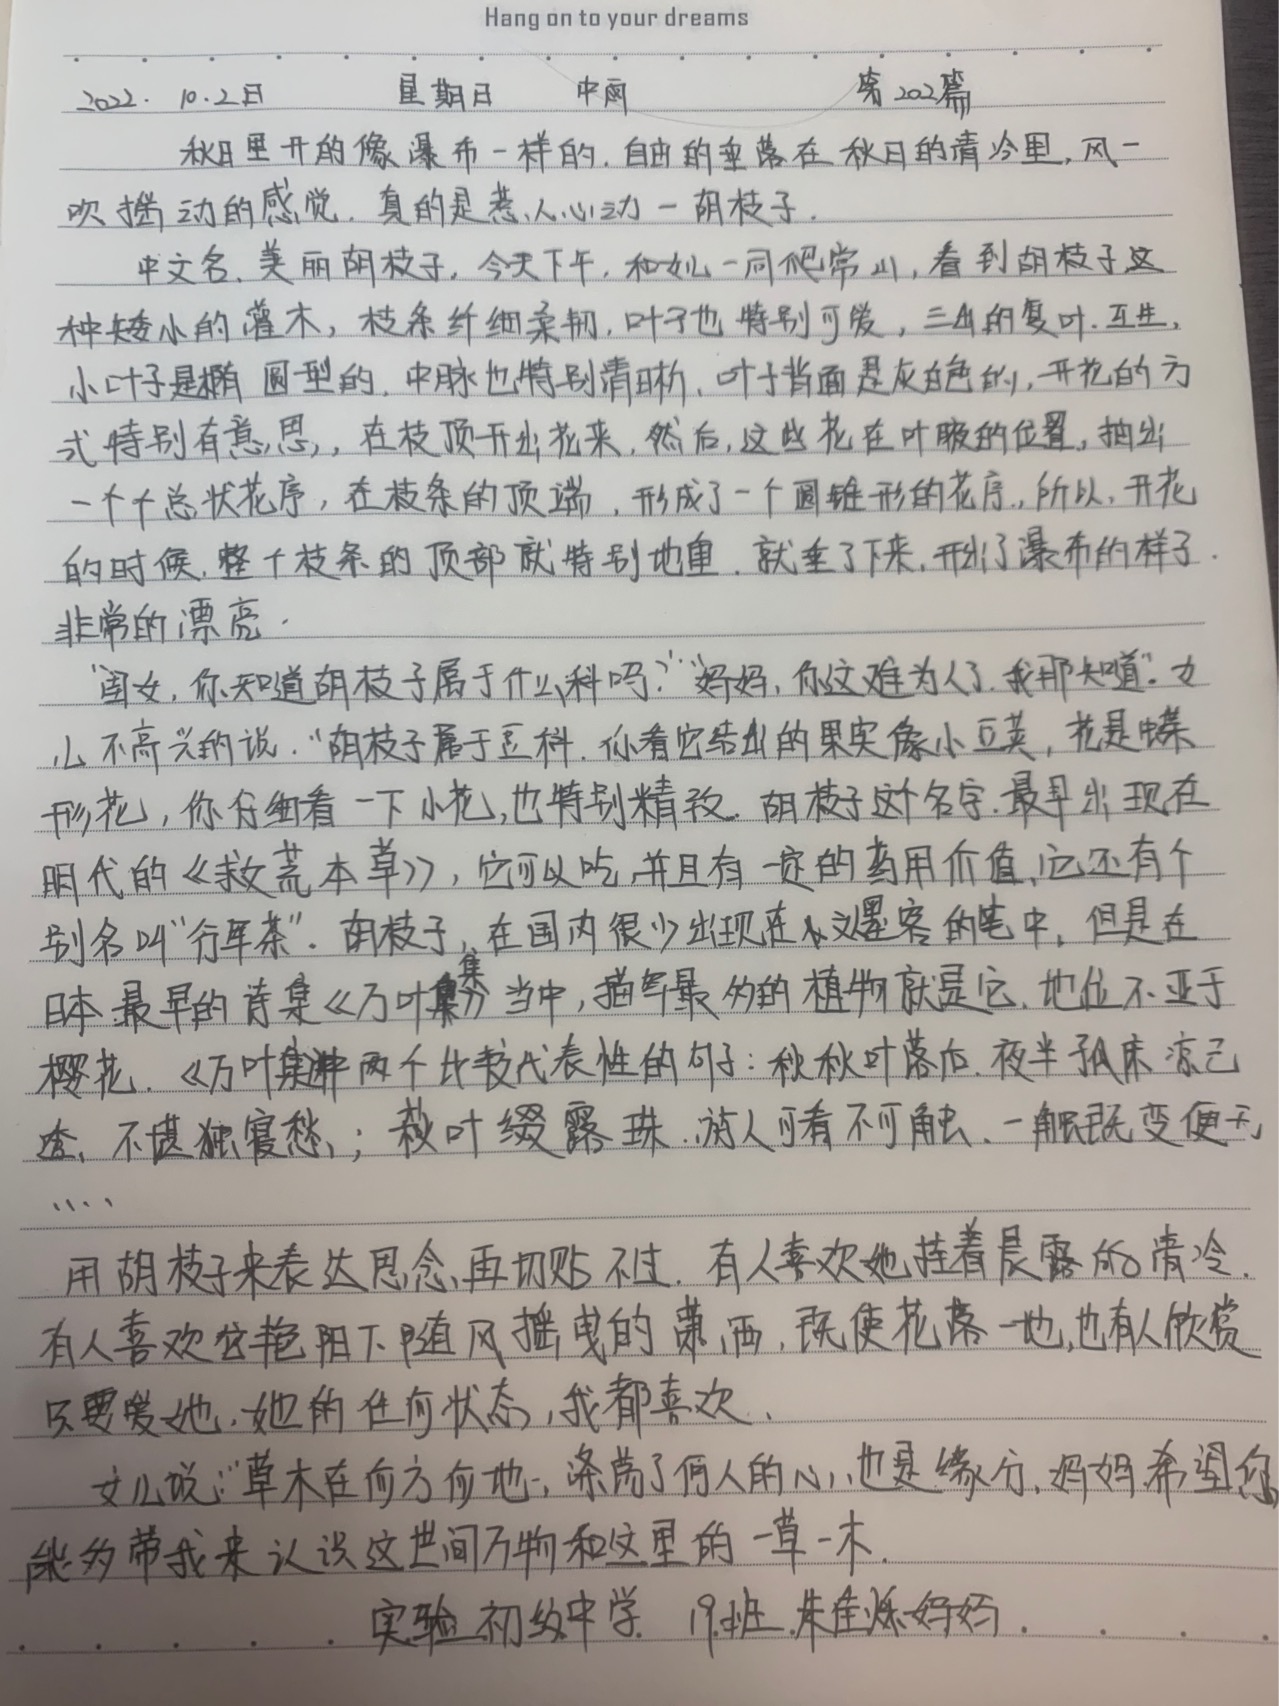 Hang on to your dreams
2022. 10.2日 星期日 中雨 第202篇
秋日里开的像瀑布一样的.自由的垂落在秋日的清冷里,风一
吹摇动的感觉.真的是惹人心动一胡枝子.
中文名.美丽胡枝子.今天下午,和女儿一同爬常山,看到胡枝子这
种矮小的灌木,枝条纤细柔韧,叶子也特别可爱,三出的复叶.互生,
小叶子是椭圆型的.中脉也特别清晰、叶子背面是灰白色的,开花的方
式特别有意思,在枝顶开出花来.然后,这些花在叶腋的位置,抽出
一个个总状花序,在枝条的顶端,形成了一个圆锥形的花序.,所以.开花
的时候.整个枝条的顶部就特别地重.就垂了下来.形出了瀑布的样子.
非常的漂亮.
"闺女,你知道胡枝子属于什么科吗?""妈妈,你这难为人了.我那知道".女
儿不高兴的说."胡枝子属于豆科.你看它结出的果实像小豆荚,花是蝶
形花,你仔细看一下小花,也特别精致.胡枝子这个名字.最早出现在
明代的《救荒本草》,它可以吃,并且有一定的药用价值,它还有个
别名叫"行军茶".胡枝子,在国内很少出现在文墨客的笔中.但是在
日本最早的诗集《万叶集》当中,描写最多的植物就是它.地位不亚于
樱花.《万叶集》中两个比较代表性的句子:秋秋叶落后.夜半孤床凉已
透、不堪独寝愁、;萩叶缀露珠.游人可看不可触、一触既变便无
....
用胡枝子来表达思念、再切贴不过.有人喜欢她挂着晨露的清冷.
有人喜欢在艳阳下随风摇曳的萧洒,既使花落一地,也有人欣赏
只要爱她.她的任何状态,我都喜欢.
女儿说:"草木在何方何地,涤荡了何人的心,也是缘分.妈妈希望您
能多带我来认识这世间万物和这里的一草一木.
实验初级中学 19.班.朱佳烁妈妈.